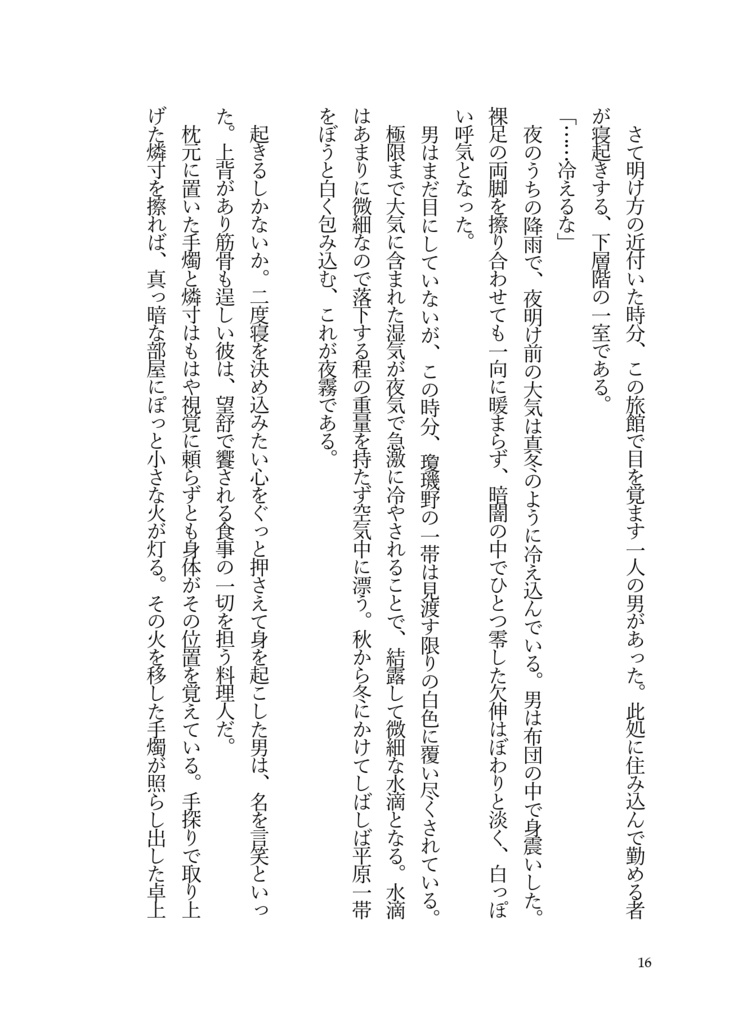 さて明け方の近付いた時分、この旅館で目を覚ます一人の男があった。此処に住み込んで勤める者
が寝起きする、下層階の一室である。
「……冷えるな」
夜のうちの降雨で、夜明け前の大気は真冬のように冷え込んでいる。男は布団の中で身震いした。
裸足の両脚を擦り合わせても一向に暖まらず、暗闇の中でひとつ零した欠伸はぼわりと淡く、白っぽ
い呼気となった。
男はまだ目にしていないが、この時分、瓊璣野の一帯は見渡す限りの白色に覆い尽くされている。
極限まで大気に含まれた湿気が夜気で急激に冷やされることで、結露して微細な水滴となる。水滴
はあまりに微細なので落下する程の重量を持たず空気中に漂う。秋から冬にかけてしばしば平原一帯
をぼうと白く包み込む、これが夜霧である。
起きるしかないか。二度寝を決め込みたい心をぐっと押さえて身を起こした男は、名を言笑といっ
た。上背があり筋骨も逞しい彼は、望舒で饗される食事の一切を担う料理人だ。
枕元に置いた手燭と燐寸はもはや視覚に頼らずとも身体がその位置を覚えている。手探りで取り上
げた燐寸を擦れば、真っ暗な部屋にぽっと小さな火が灯る。その火を移した手燭が照らし出した卓上
16